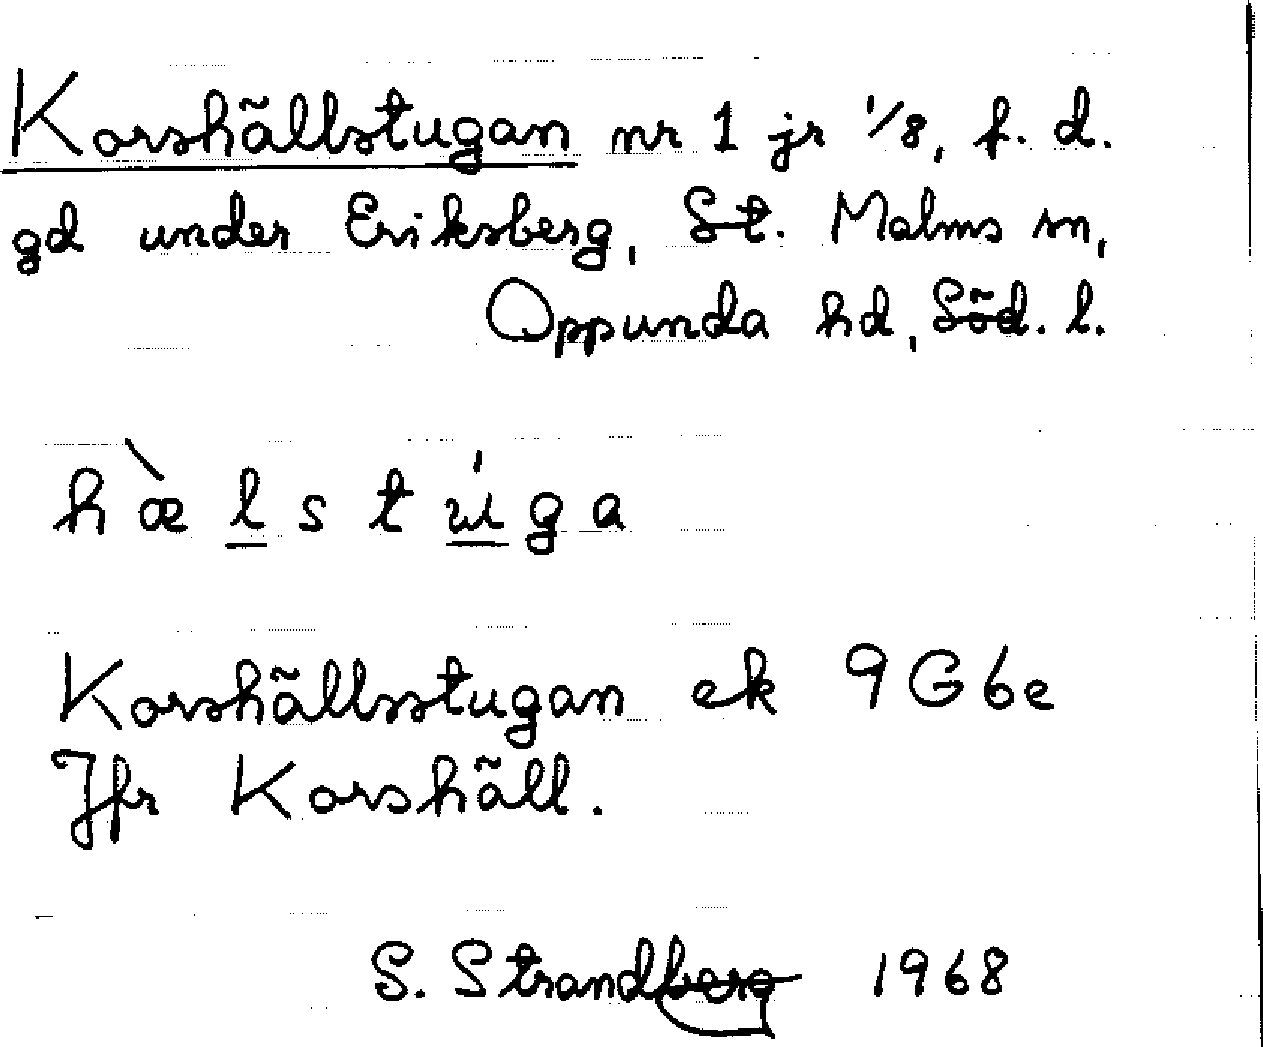 Korshällstugan nr 1 jr 1/8, f. d.
gd under Eriksberg, St. Malms sn,
Oppunda hd, Söd. l.
hæ̀lstúga
Korshällsstugan ek 9G6e
Jfr Korshäll.
S. Strandberg 1968